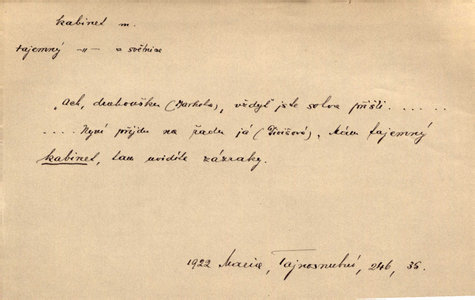 kabinet m.
tajemný —"— a světnice
„Ach, drahoušku (Barkola), vždyť jste sotva přišli . . . . . .
. . . . Nyní přijdu na řadu já (Tivišová). Mám tajemný
kabinet, tam uvidíte zázraky.
1922 Maria, Tajnosnubní, 246, 35.